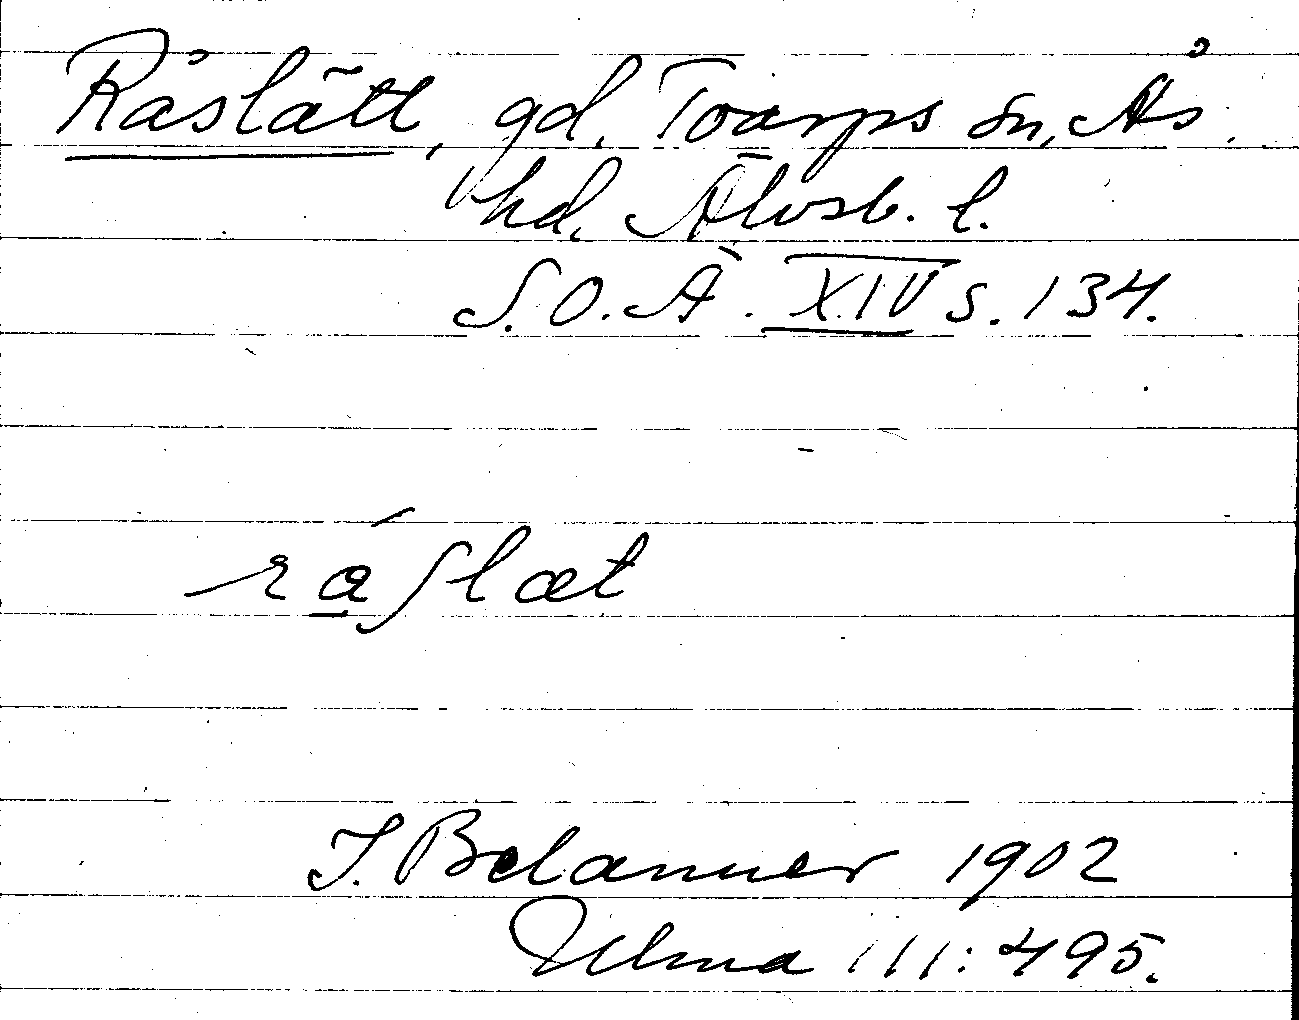 Råslätt, gd. Toarps sn, Ås.
hd. Älvsb. l.
S.O.Ä. XIV s. 134.
rá̱ʃlæt
J. Belanner 1902
Ulma 111:495.